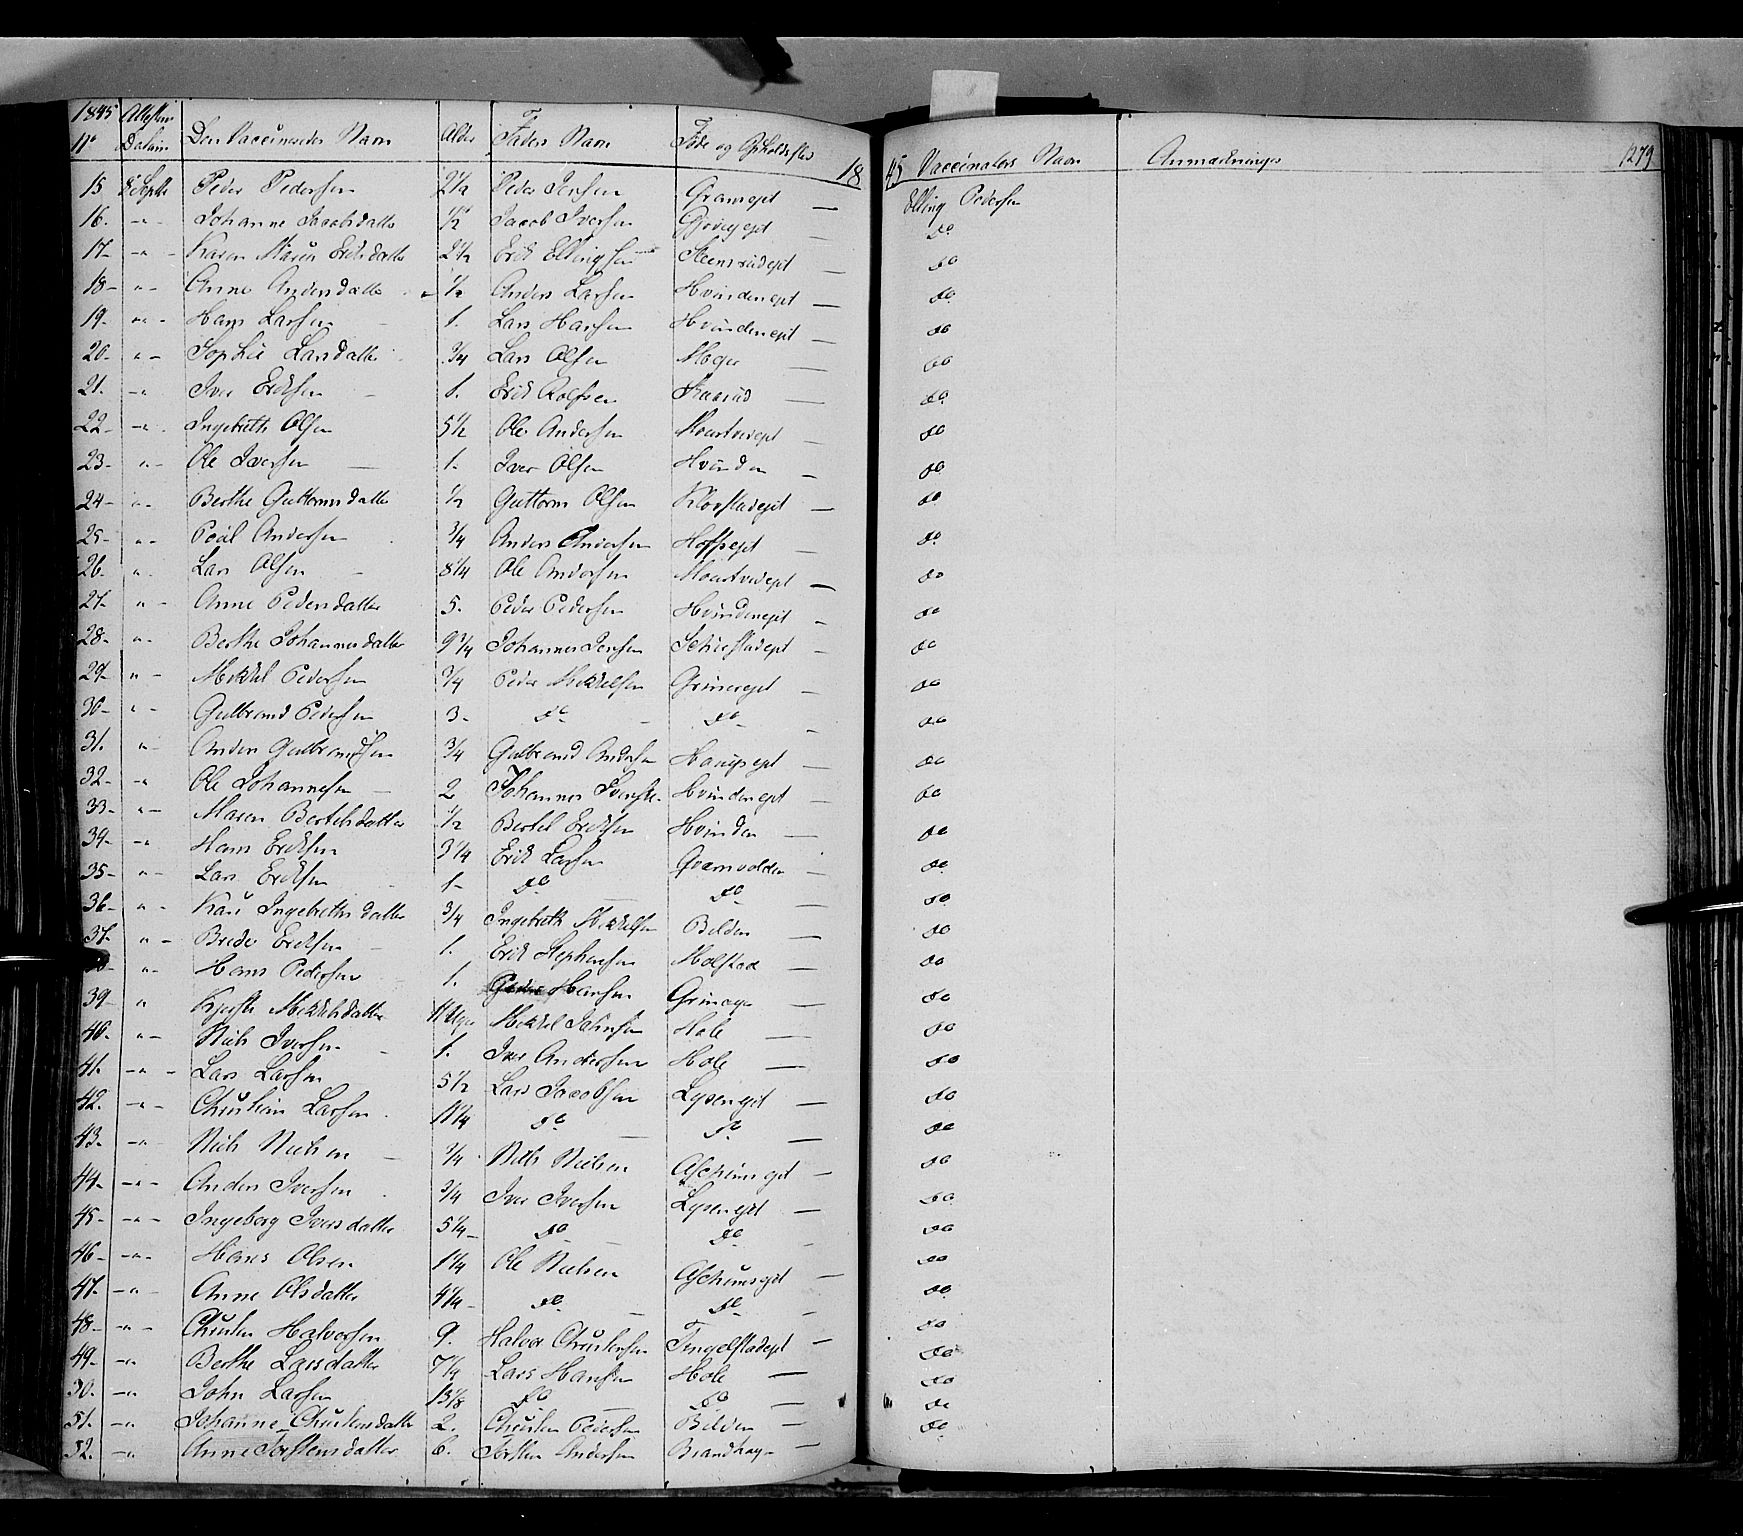 1845 18 45 1279
No Attestens Datum Den Vaccineredes Navn Alder Faders Navn Føde og Opholdssted Vaccinators Navn Anmærkninger
15 8 Septbr Peder Pedersen 2 1/2 Peder Jensen Gransejet — Elling Pedersen
16. -"- Johanne Jacobsdatter 1/2 Jacob Iversen — do
17- -"- Karen Maria Eriksdatter 2 1/2 Erik Ellingsen Steensrudejet — do
18- -"- Anne Andersdatter 1/2 Anders Larsen Hvindenejet — do
19- -"- Hans Larsen 1. Lars Hansen Hvindenejet — do
20- -"- Sophie Larsdatter 3/4 Lars Olsen Moger — do
21. -"- Iver Eriksen 1. Erik Rolfsen Kaarud — do
22- -"- Ingebreth Olsen 5 1/2 Ole Andersen — do
23- -"- Ole Iversen 1. Iver Olsen Hvinden — do
24- -"- Berthe Guttormsdatter 1/2 Guttorm Olsen Klovstadejet — do
25- -"- Poul Andersen 3/4 Anders Andersen Hoffsejet — do
26. -"- Lars Olsen 8 1/4 Ole Andersen — do
27- -"- Anne Pedersdatter 5. Peder Pedersen Hvindenejet — do
28- -"- Berthe Johannesdatter 9 1/4 Johannes Jensen — do
29- -"- Mikkel Pedersen 3/4 Peder Mikkelsen Grinerejet — do
30- -"- Gulbrand Pedersen 3- do do — do
31. -"- Anders Gulbrandsen 3/4 Gulbrand Andersen — do
32- -"- Ole Johannesen 2 Johannes Hvindenejet — do
33- -"- Maren Bertelsdatter 1/2 Bertel Eriksen Hvinden — do
34- -"- Hans Eriksen 3 1/4 Erik Larsen Gramvolden — do
35- -"- Lars Eriksen 1- do do — do
36- -"- Kari Ingebrethsdatter 3/4 Ingebreth Mikkelsen Bilden — do
37- -"- Brede Eriksen 1. Erik Stephensen Molstad — do
-"- Hans Pedersen 1. Peder Hansen — do
39- " Kjersti Mikkelsdatter 11 Uger Mikkel Johnsen Hole — do
40. -"- Niels Iversen 1. Iver Andersen Hole — do
41. -"- Lars Larsen 5 1/2 Lars Jacobsen Lysenejet — do
42. -"- Christian Larsen 11 1/4 do do — do
43. -"- Niels Nielsen 3/4 Niels Nielsen Aschimsejet — do
44- -"- Anders Iversen 3/4 Iver Iversen Lysenejet — do
45- -"- Ingeborg Iversdatter 5 1/4- do do — do
46- -"- Hans Olsen 1 1/4 Ole Nielsen Aschimsejet — do
47. -"- Anne Olsdatter 4 1/4- do do — do
48- -"- Christen Halvorsen 9. Halvor Christensen Tingelstadejet — do
49- -"- Berthe Larsdatter 7 1/4 Lars Hansen Hole — do
50. -"- John Larsen 13 1/8 do do — do
51. -"- Johanne Christensdatter 2. Christen Pedersen Bilden — do
52. -"- Anne Torstensdatter 6. Torsten Andersen —